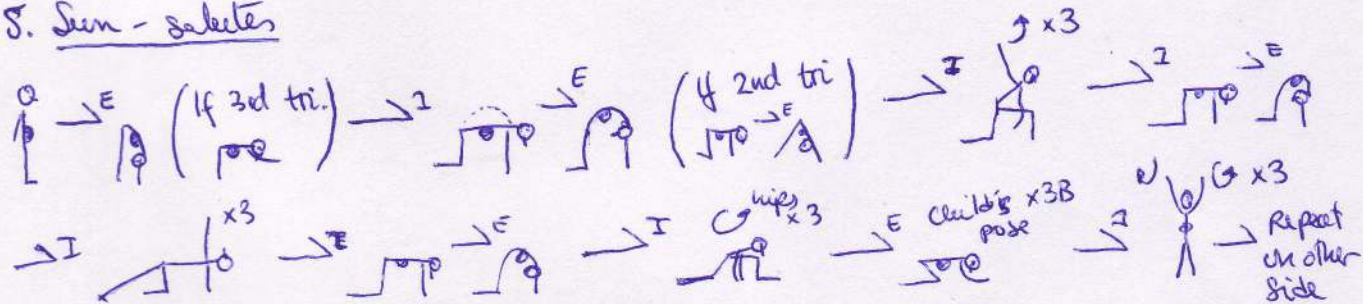 5. Sun-salutes
E (If 3rd tri.) I E (If 2nd tri E) I x3 I E
I x3 I E I hips x3 E child's pose x3B I x3 Repeat on other side